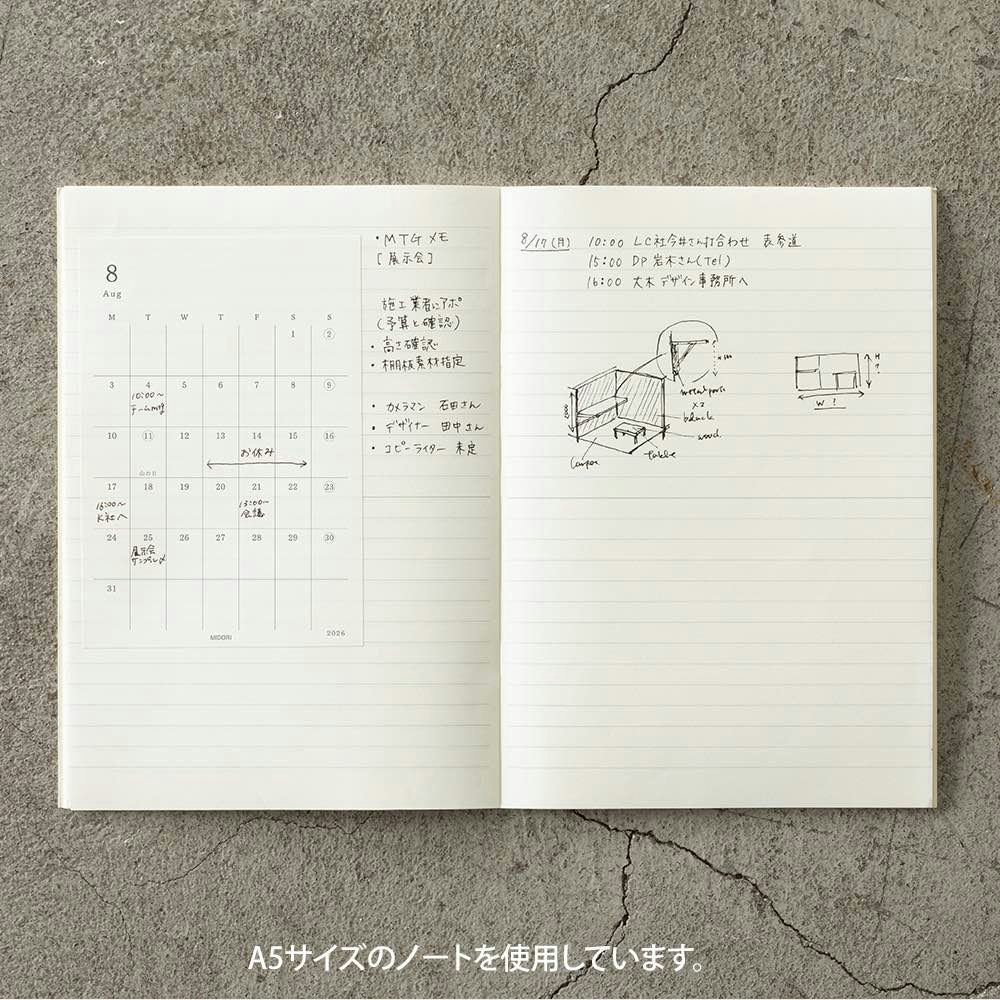 8
Aug
M T W T F S S
1 2
3 4 5 6 7 8 9
10:00〜
チームmtg
10 11 12 13 14 15 16
お休み
山の日
17 18 19 20 21 22 23
16:00〜
K社へ
13:00〜
会議
24 25 26 27 28 29 30
展示会
サンプル〆
31
MIDORI
2026
・MTG メモ
[展示会]
施工業者にアポ
(予算と確認)
・高さ確認
・棚板素材指定
・カメラマン 石田さん
・デザイナー 田中さん
・コピーライター 未定
8/17(月) 10:00 LC社今井さん打合わせ 表参道
15:00 DP 岩木さん(Tel)
16:00 大木デザイン事務所へ
metal parts
×2
black
wood
table
H
?
W ?
A5サイズのノートを使用しています。